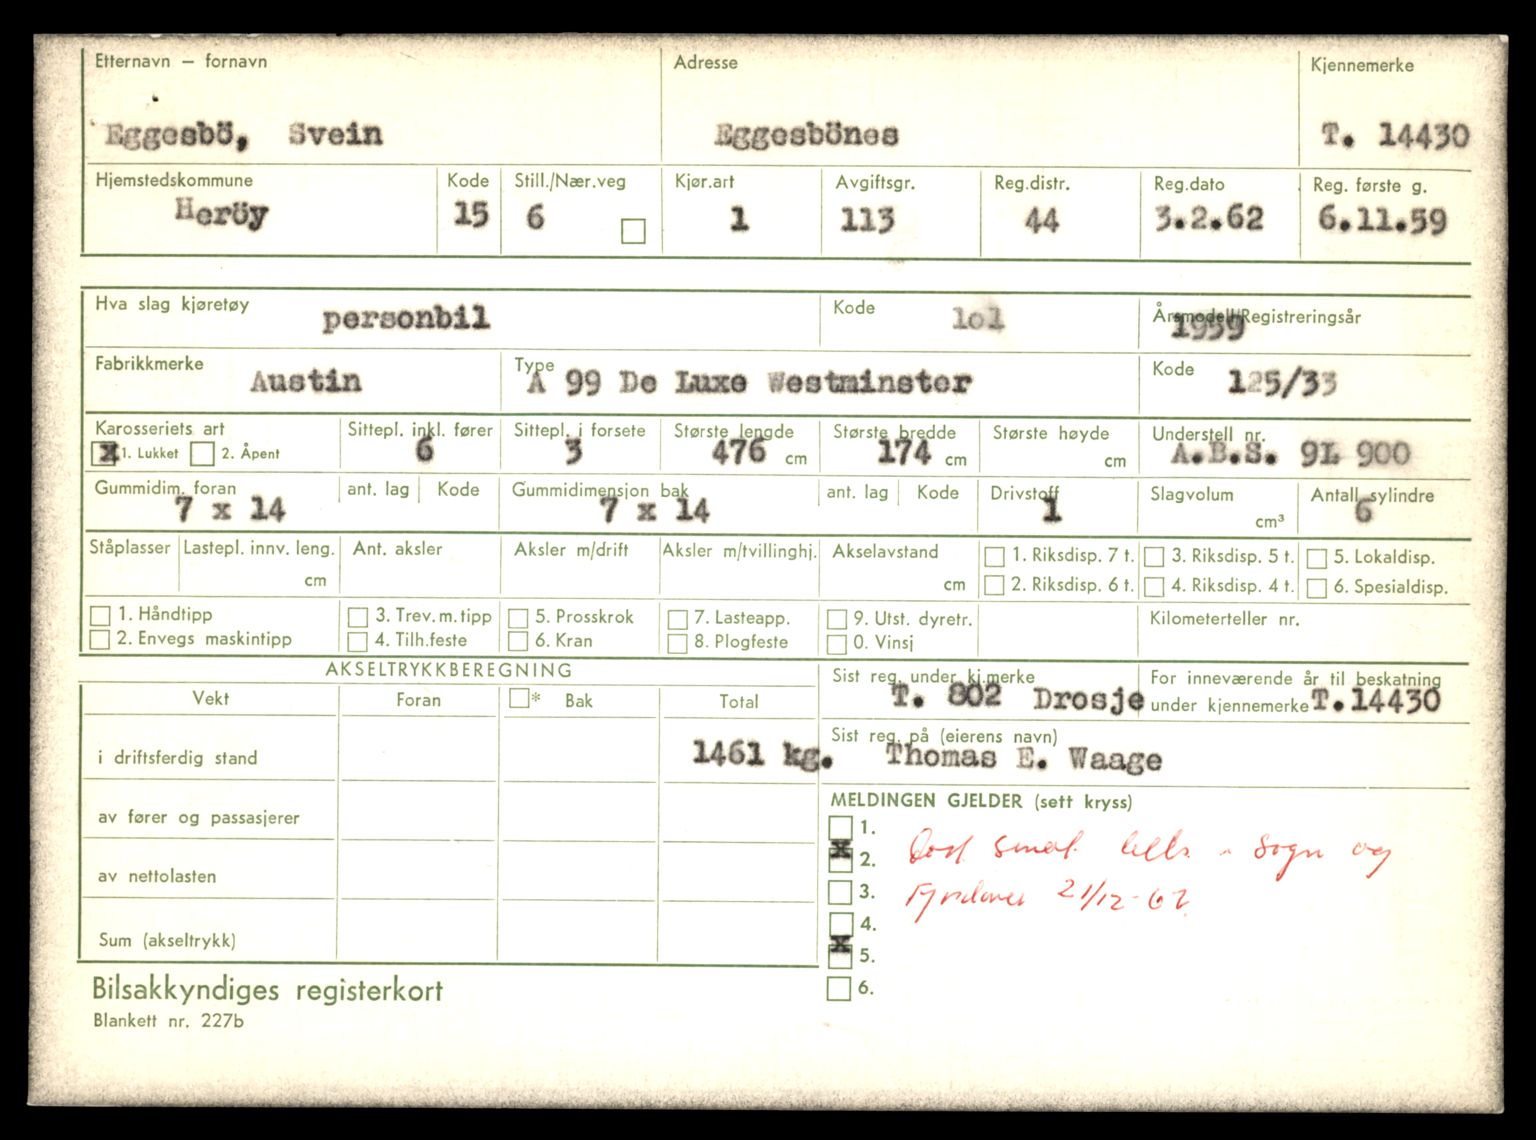 Etternavn — fornavn Adresse Kjennemerke
Eggesbö, Svein Eggesbönes T. 14430
Hjemstedskommune Kode Still./Nær.veg Kjør.art Avgiftsgr. Reg.distr. Reg.dato Reg. første g.
Heröy 15 6 1 113 44 3.2.62 6.11.59
Hva slag kjøretøy personbil Kode lol Årsmodell/Registreringsår 1959
Fabrikkmerke Austin Type A 99 De Luxe Westminster Kode 125/33
Karosseriets art Sittepl. inkl. fører Sittepl. i forsete Største lengde Største bredde Største høyde Understell nr.
x 1. Lukket 2. Åpent 6 3 476 cm 174 cm cm A.B.S. 9L 900
Gummidim. foran ant. lag Kode Gummidimensjon bak ant. lag Kode Drivstoff Slagvolum Antall sylindre
7 x 14 7 x 14 1 cm³ 6
Ståplasser Lastepl. innv. leng. Ant. aksler Aksler m/drift Aksler m/tvillinghj. Akselavstand 1. Riksdisp. 7 t. 3. Riksdisp. 5 t. 5. Lokaldisp.
cm cm 2. Riksdisp. 6 t. 4. Riksdisp. 4 t. 6. Spesialdisp.
1. Håndtipp 3. Trev. m. tipp 5. Prosskrok 7. Lasteapp. 9. Utst. dyretr. Kilometerteller nr.
2. Envegs maskintipp 4. Tilh.feste 6. Kran 8. Plogfeste 0. Vinsj
AKSELTRYKKBEREGNING
Vekt Foran * Bak Total
i driftsferdig stand 1461 kg.
av fører og passasjerer
av nettolasten
Sum (akseltrykk)
Sist reg. under kj.merke For inneværende år til beskatning
T. 802 Drosje under kjennemerke T.14430
Sist reg. på (eierens navn)
Thomas E. Waage
MELDINGEN GJELDER (sett kryss)
1.
x 2. Sogn og
3. 21/12-62
4.
x 5.
6.
Bilsakkyndiges registerkort
Blankett nr. 227b